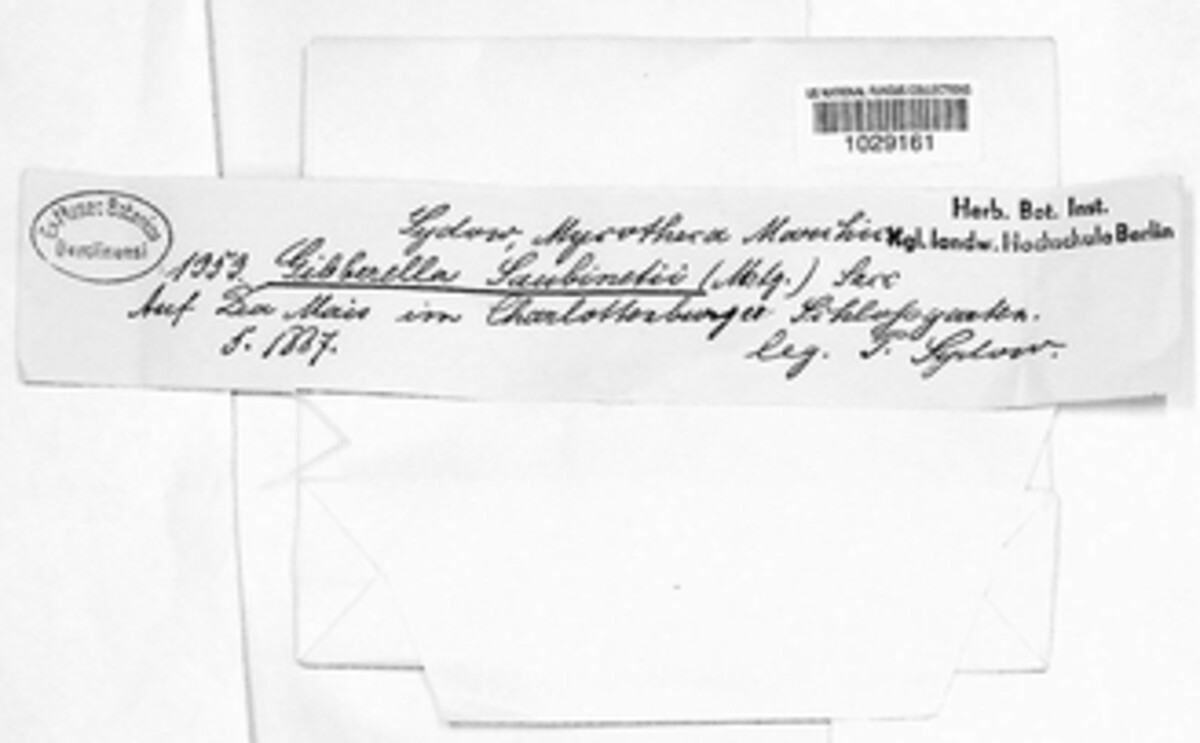 US NATIONAL FUNGUS COLLECTIONS
1029161
Ex Museo Botanico
Berolinensi
Herb. Bot. Inst.
Kgl. landw. Hochschule Berlin
Sydow, Mycotheca Marchica
1353 Gibberella Saubinetii (Mntg.) Sacc
Auf Zea Mais im Charlottenburger Schlossgarten.
5. 1887.
leg. P. Sydow.